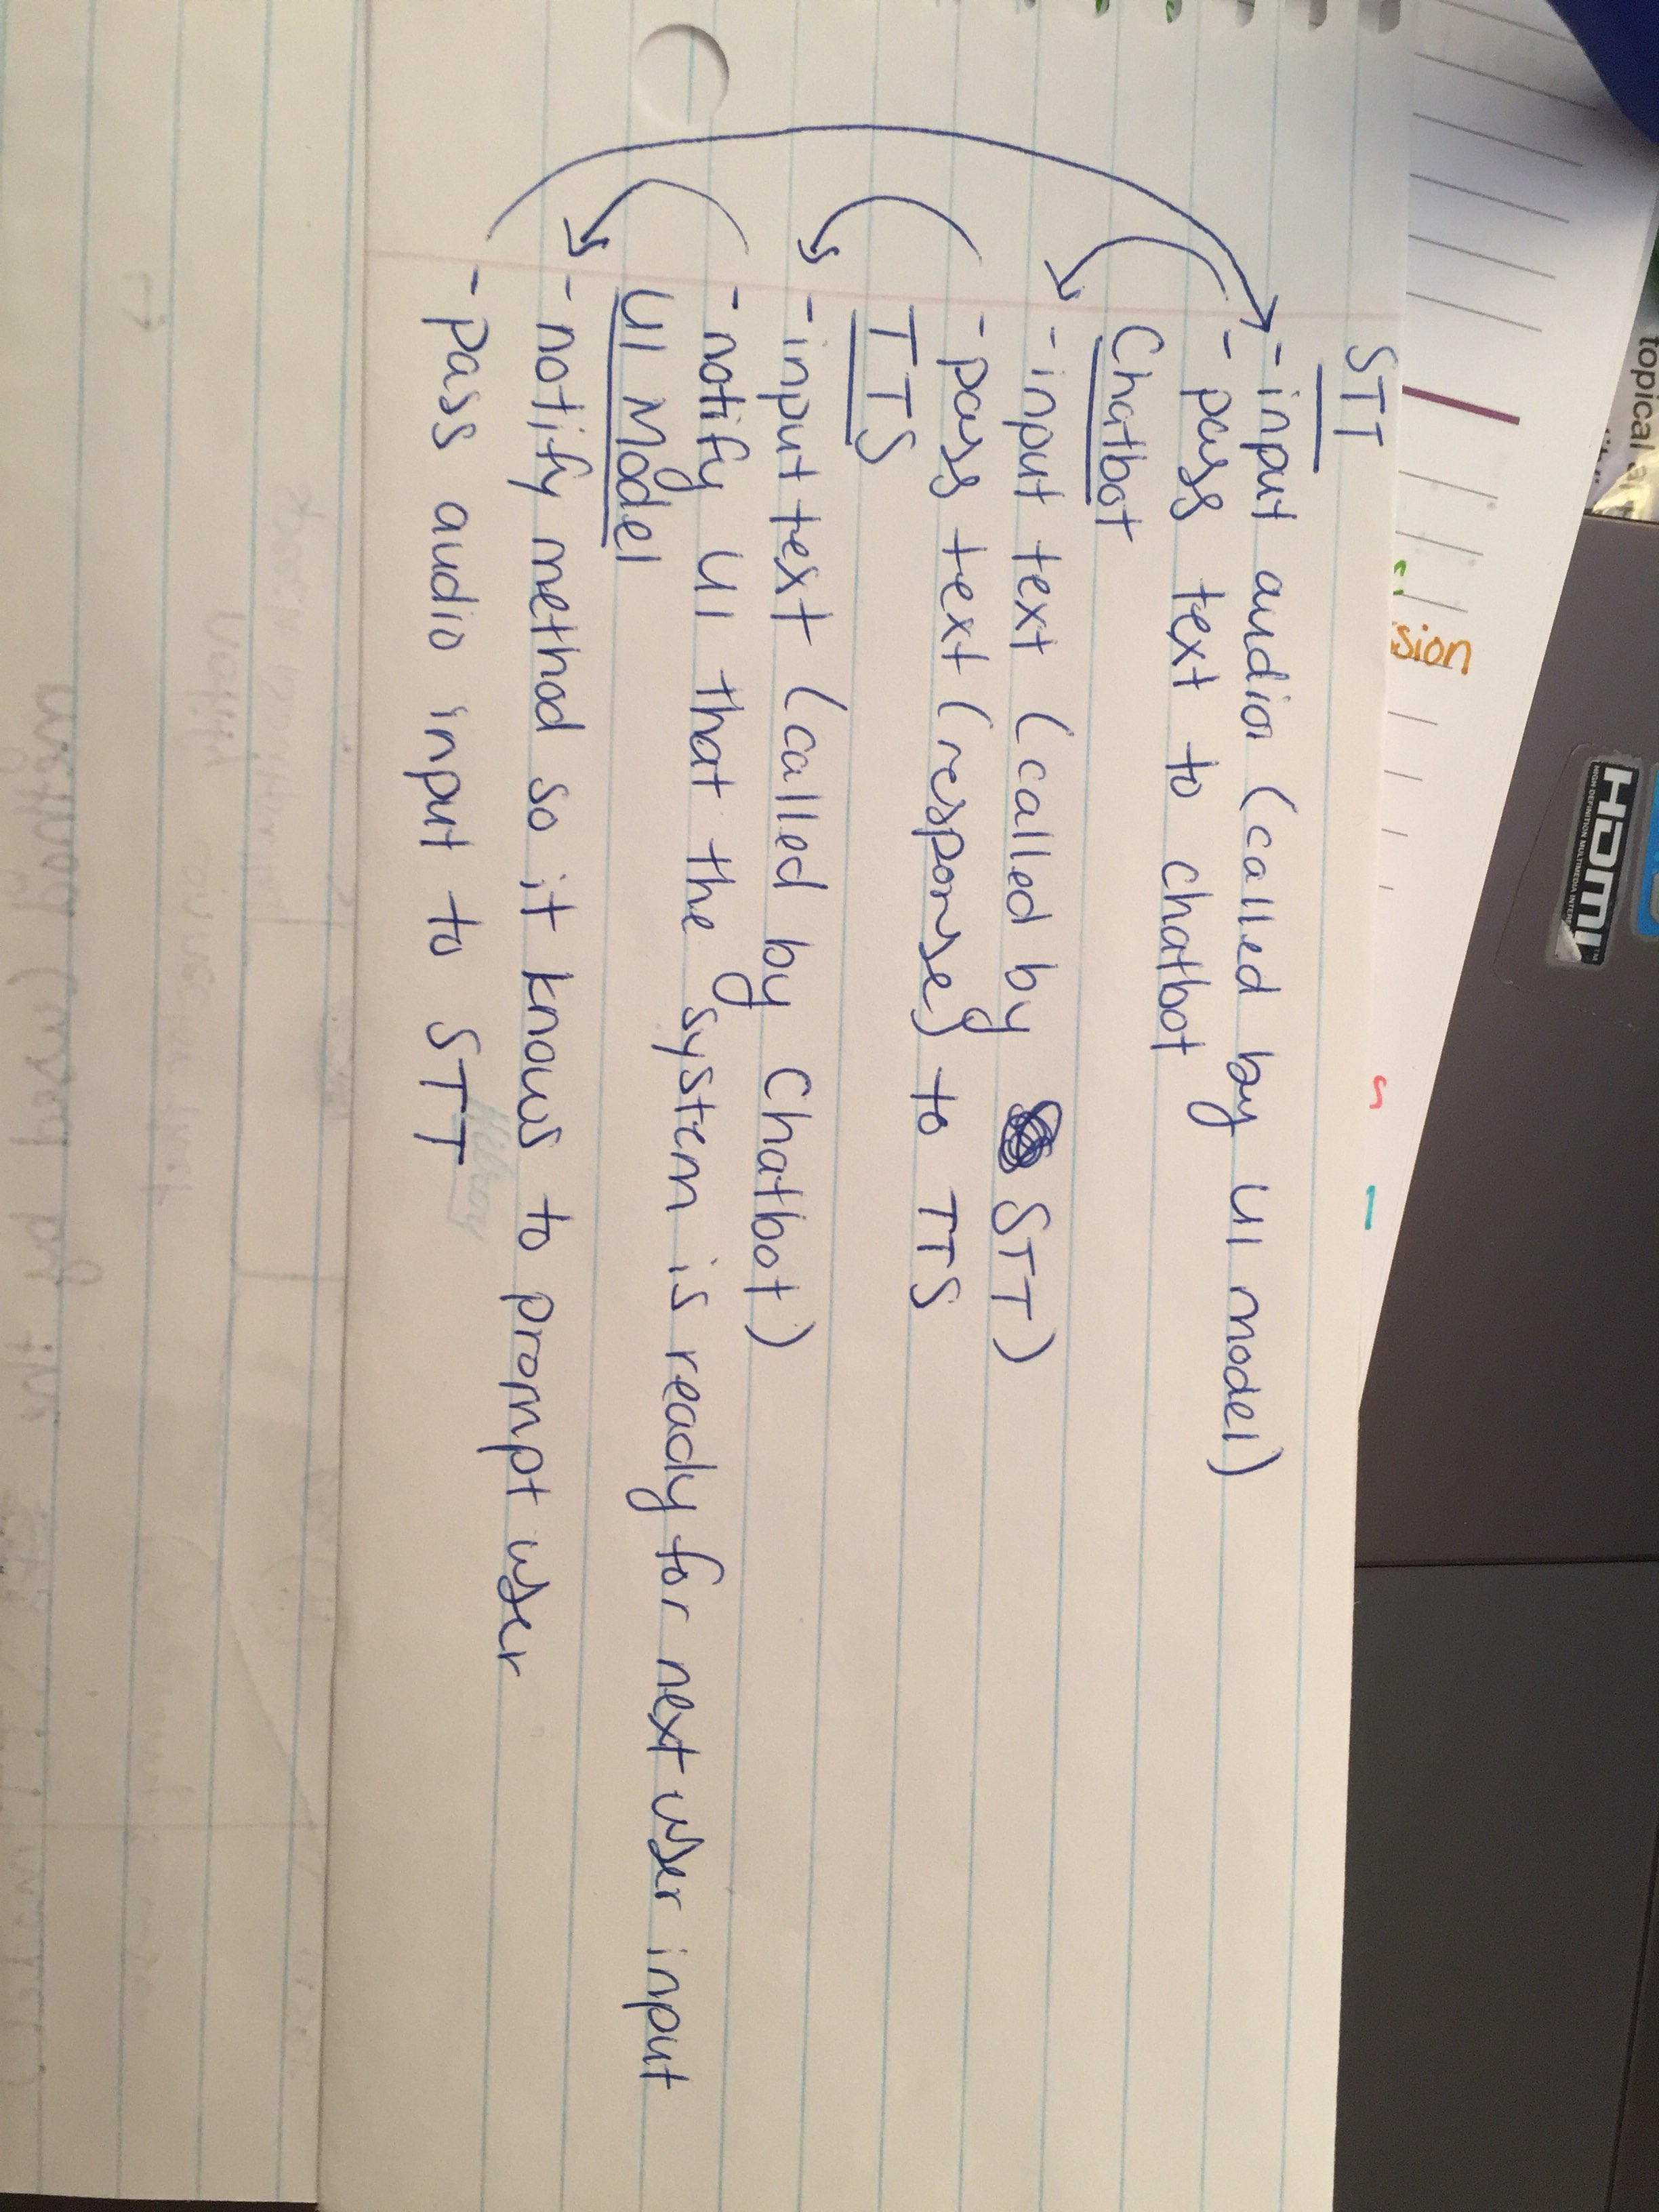 topical
HDMI™
HIGH-DEFINITION MULTIMEDIA
sion
STT
- input audio (called by UI model)
- pass text to chatbot
Chatbot
- input text (called by STT)
- pass text (response) to TTS
TTS
- input text (called by Chatbot)
- notify UI that the system is ready for next user input
UI Model
- notify method so it knows to prompt user
Hilroy
- pass audio input to STT